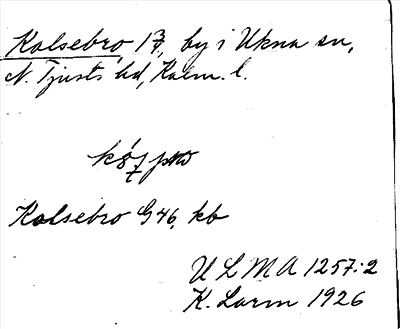 Kolsebro 1 3/7, by i Ukna sn,
N. Tjusts hd, Kalm. l.
Kolsebro G46, kb
U L M A 1257:2
K. Larm 1926